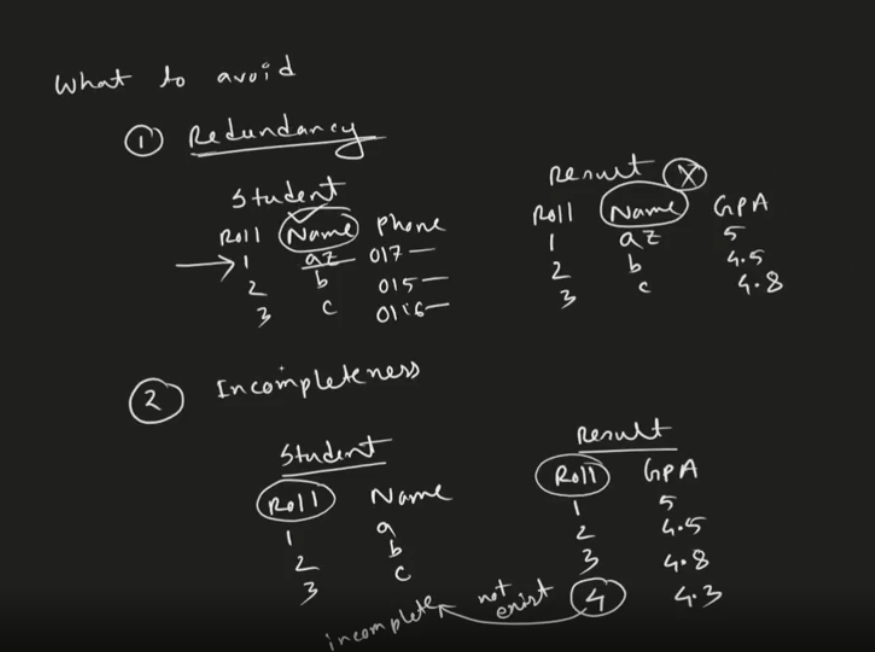 What to avoid
1 Redundancy
Student
Roll Name Phone
1 az 017—
2 b 015—
3 c 0116—
Result X
Roll Name GPA
1 az 5
2 b 4.5
3 c 4.8
2 Incompleteness
Student
Roll Name
1 a
2 b
3 c
Result
Roll GPA
1 5
2 4.5
3 4.8
4 4.3
not exist
incomplete